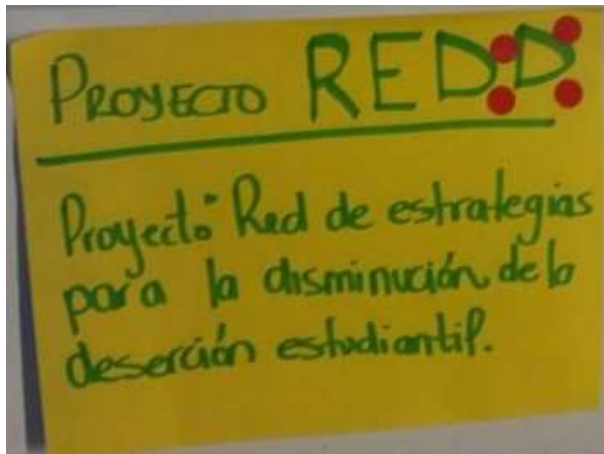 PROYECTO REDD
Proyecto: Red de estrategias
para la disminución de la
deserción estudiantil.